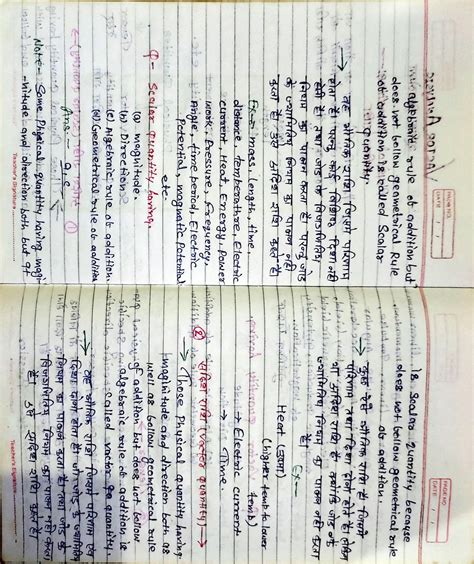 Vector Analysis
PAGE NO.
DATE
algebraic rule ob addition but
does not bollow geometrical Rule
ob addition is called Scalar
quantity.
→ वह भौतिक राशि जिसमे परिमाण
होता है परन्तु कोई निश्चित दिशा नही
होती है। तथा जोड़ के बिजगणितिय
नियम का पालन करता है परन्तु जोड़
के ज्यामितिय नियम का पालन नही
करता है उसे अदिश राशि कहते है।
Ex → mass, length, time,
distance, temperature, Electric
current, Heat, Energy, Power
work, Pressure, frequency,
Angle, time period, Electric
Potential, magnatic Potential
etc.
Q- Scalar quantity having,
(a) magnitude.
(b) Direction
(c) Algebraic rule ob addition
(d) Geometrical rule ob addition
Ans - a, c
Note- Some Physical quantity having mag-
-nitude and direction both but it
Teacher's Signature
PAGE NO.
DATE
Is Scalar quantity because
does not bollow geometrical rule
ob addition.
→ कुछ ऐसे भौतिक राशि है जिसमे
परिमाण तथा दिशा दोनो होते है लेकिन
वो अदिश राशि है क्योकि जोड़ के
ज्यामितिय नियम का पालन नही करता
Ex-
Heat (उष्मा)
(higher temp to lower
temp)
→ Electric current
→ Time
② सदिश राशि (Vector quantity) →
→ Those Physical quantity having
magnitude and direction both as
well as bollow geometrical rule
of addition but does not bollow
algebraic rule ob addition is
called vector quantity.
→ वह भौतिक राशि जिसमे परिमाण एवं
दिशा दोनो होता है। जो जोड़ के ज्यामितिय
नियम का पालन करता है तथा जोड़ के
बिजगणितिय नियम का पालन नही करता
है। उसे सदिश राशि कहते है।
Teacher's Signature